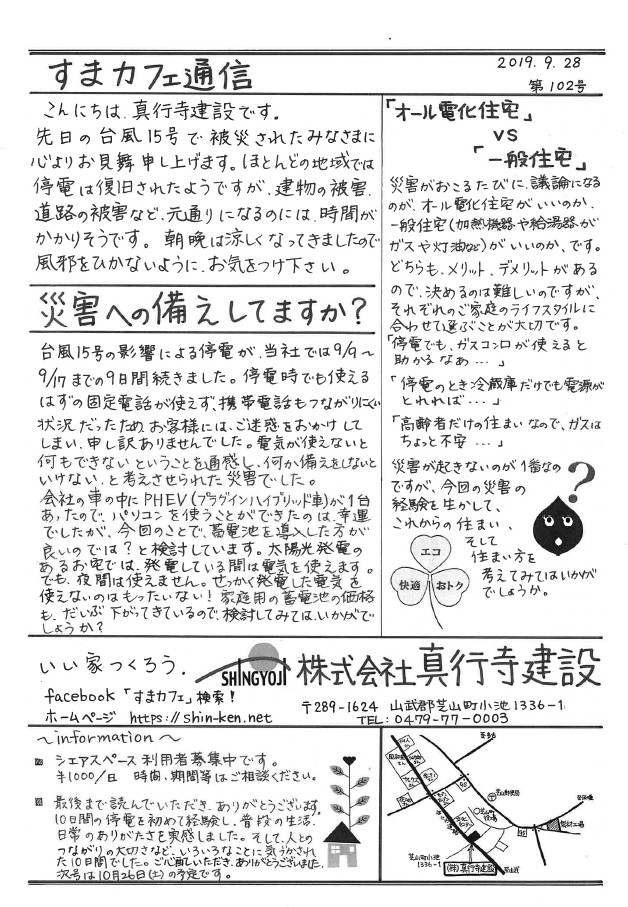 すまカフェ通信
2019. 9. 28
第102号
こんにちは、真行寺建設です。
先日の台風15号で被災されたみなさまに
心よりお見舞申し上げます。ほとんどの地域では
停電は復旧されたようですが、建物の被害、
道路の被害など、元通りになるのには、時間が
かかりそうです。朝晩は涼しくなってきましたので
風邪をひかないように、お気をつけ下さい。
災害への備えしてますか?
台風15号の影響による停電が、当社では9/9〜
9/17までの9日間続きました。停電時でも使える
はずの固定電話が使えず、携帯電話もつながりにくい
状況だったため、お客様には、ご迷惑をおかけして
しまい、申し訳ありませんでした。電気が使えないと
何もできないということを痛感し、何か備えをしないと
いけない、と考えさせられた災害でした。
会社の車の中にPHEV(プラグインハイブリッド車)が1台
あったので、パソコンを使うことができたのは、幸運
でしたが、今回のことで、蓄電池を導入した方が
良いのでは?と検討しています。太陽光発電の
あるお宅では、発電している間は電気を使えます。
でも、夜間は使えません。せっかく発電した電気を
使えないのはもったいない!家庭用の蓄電池の価格
も、だいぶ下がってきているので、検討してみては、いかがで
しょうか?
「オール電化住宅」
VS
「一般住宅」
災害がおこるたびに、議論になる
のが、オール電化住宅がいいのか、
一般住宅(加熱機器や給湯器が
ガスや灯油など)がいいのか、です。
どちらも、メリット、デメリットがある
ので、決めるのは難しいのですが、
それぞれのご家庭のライフスタイルに
合わせて選ぶことが大切です。
「停電でも、ガスコンロが使えると
助かるなぁ・・・」
「停電のとき冷蔵庫だけでも電源が
とれれば・・・」
「高齢者だけの住まいなので、ガスは
ちょっと不安・・・」
災害が起きないのが1番なの
ですが、今回の災害の
経験を生かして、
これからの住まい、
そして
住まい方を
考えてみてはいかが
でしょうか。
?
エコ
快適
おトク
いい家つくろう。
SHINGYOJI
株式会社真行寺建設
facebook「すまカフェ」検索!
ホームページ https://shin-ken.net
〒289-1624 山武郡芝山町小池1336-1
TEL:0479-77-0003
〜information〜
シェアスペース利用者募集中です。
¥1000/日 時間、期間等はご相談ください。
最後まで読んでいただき、ありがとうございます。
10日間の停電を初めて経験し、普段の生活、
日常のありがたさを実感しました。そして、人との
つながりの大切さなど、いろいろなことに気づかされ
た10日間でした。ご心配いただき、ありがとうございました。
次号は10月26日(土)の予定です。
芝山郵便局
芝山町小池
1336-1
(株)真行寺建設